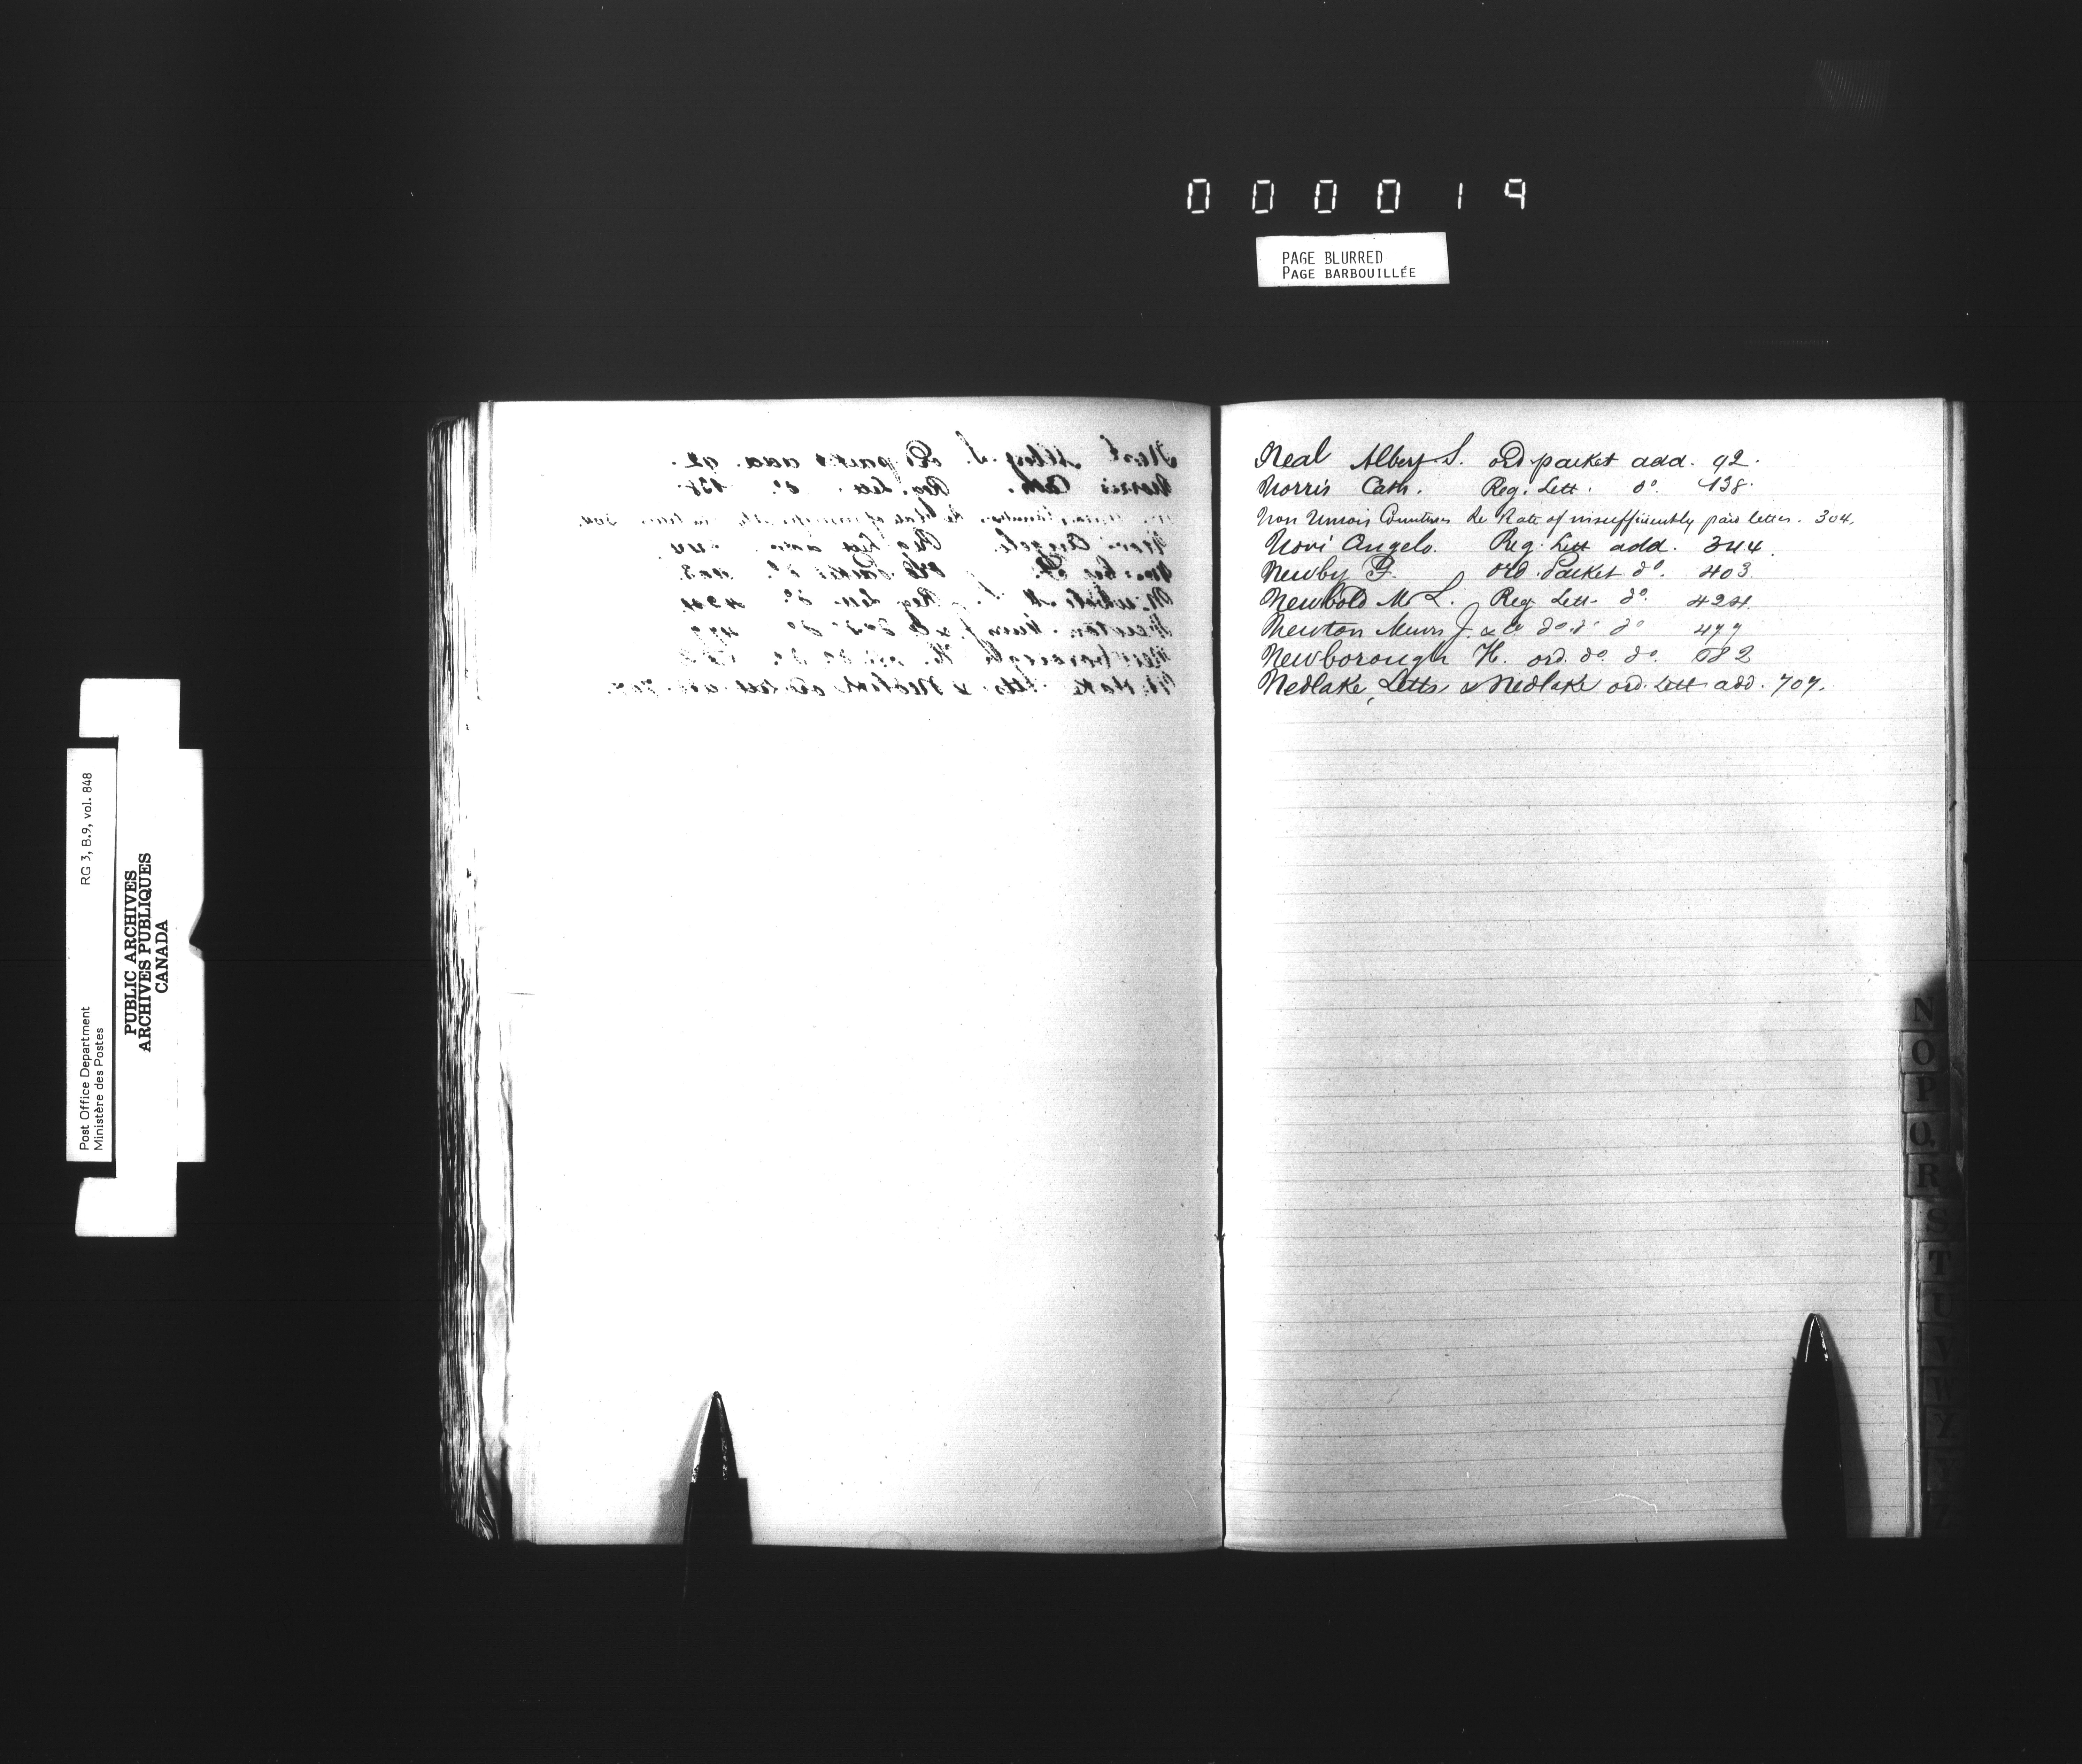 000019
PAGE BLURRED
PAGE BARBOUILLÉE
Neal Albert S. ord packet add. 92.
Norris Cath. Reg. Lett. do. 138.
Non Union Countries Re Rate of insufficiently paid letters. 304.
Novi Angelo. Reg. Lett add. 344.
Newby F. ord. Packet do. 403.
Newbold M L. Reg Lett do. 424.
Newton J. & Co do. do do 477
Newborough H. ord. do. do. 582
Nedlake, Letts & Nedlake ord. Lett add. 707.
N
O
P
Q
R
S
T
U
V
W
Y
Post Office Department
Ministère des Postes
RG 3, B.9, vol. 848
PUBLIC ARCHIVES
ARCHIVES PUBLIQUES
CANADA